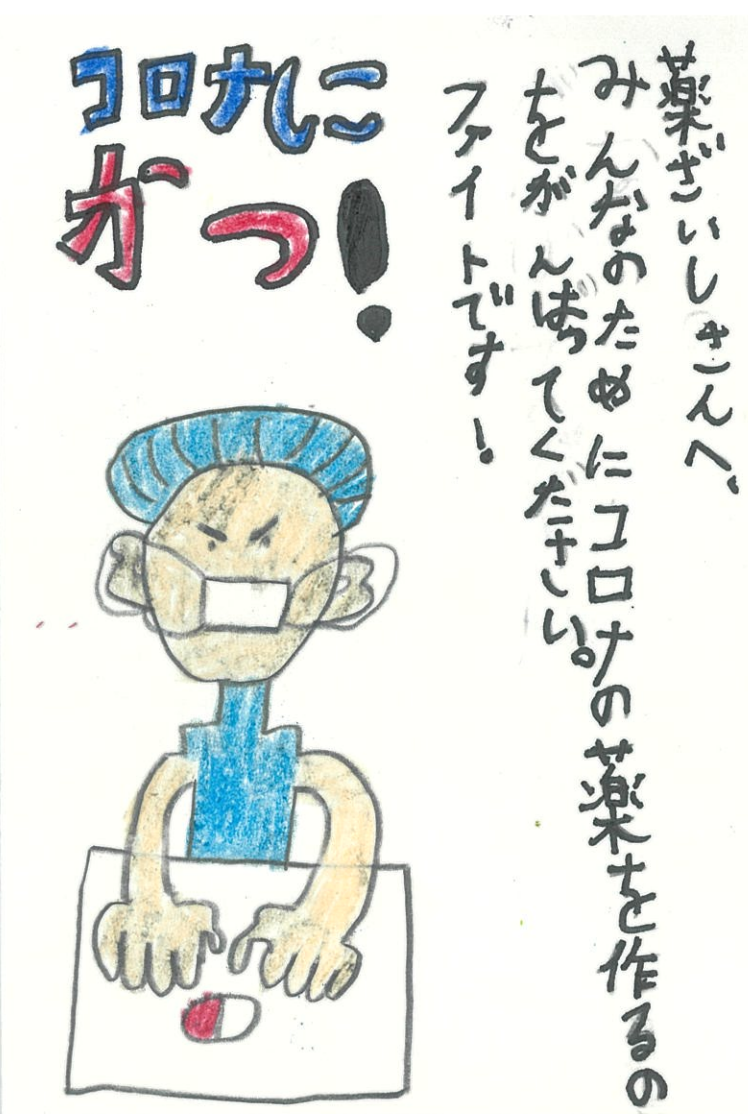 薬ざいしさんへ、
みんなのためにコロナの薬を作るの
をがんばってください。
ファイトです!
コロナに
かつ!